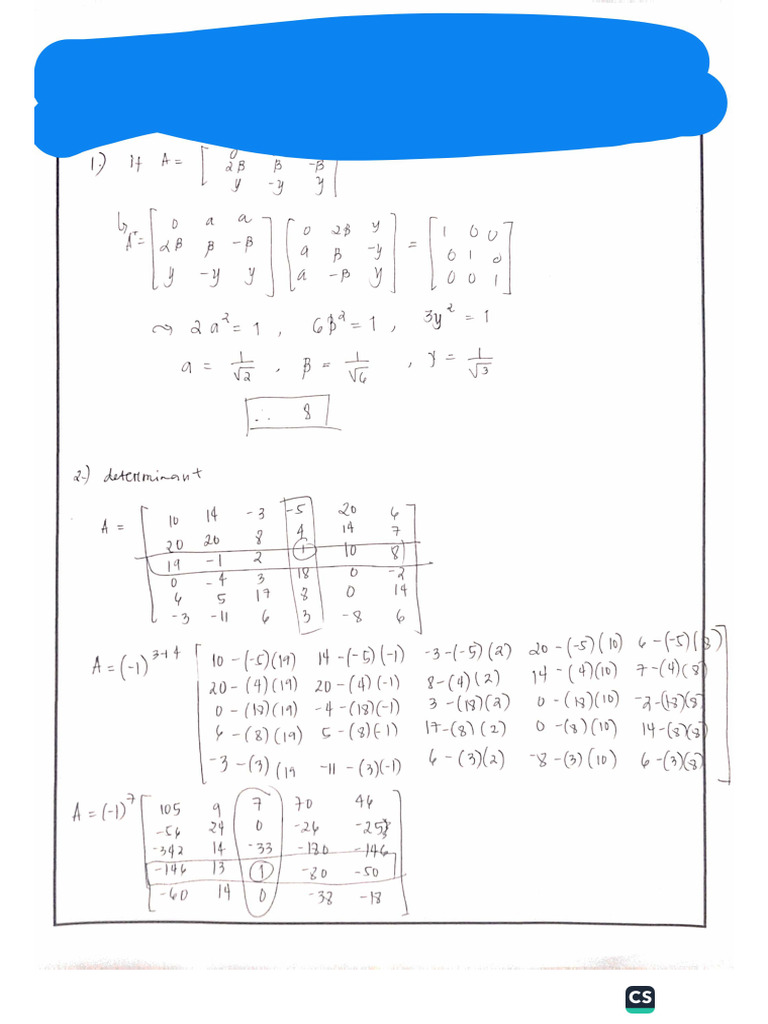 1.) If A = [ 2β β -β
y -y y ]
↳ A^T = [ 0 a a ] [ 0 2β y ] = [ 1 0 0 ]
[ 2β β -β ] [ a β -y ] [ 0 1 0 ]
[ y -y y ] [ a -β y ] [ 0 0 1 ]
~> 2a² = 1 , 6β² = 1 , 3y² = 1
a = 1/√2 , β = 1/√6 , y = 1/√3
∴ 8
2.) determinant
A = [ 10 14 -3 -5 20 6
20 20 8 4 14 7
19 -1 2 1 10 8
0 -4 3 18 0 -2
6 5 17 8 0 14
-3 -11 6 3 -8 6 ]
A = (-1)^3+4 [ 10-(-5)(19) 14-(-5)(-1) -3-(-5)(2) 20-(-5)(10) 6-(-5)(8)
20-(4)(19) 20-(4)(-1) 8-(4)(2) 14-(4)(10) 7-(4)(8)
0-(18)(19) -4-(18)(-1) 3-(18)(2) 0-(18)(10) -2-(18)(8)
6-(8)(19) 5-(8)(-1) 17-(8)(2) 0-(8)(10) 14-(8)(8)
-3-(3)(19 -11-(3)(-1) 6-(3)(2) -8-(3)(10) 6-(3)(8) ]
A = (-1)^7 [ 105 9 7 70 46
-56 24 0 -26 -25
-342 14 -33 -180 -146
-146 13 1 -80 -50
-60 14 0 -38 -18 ]
CS